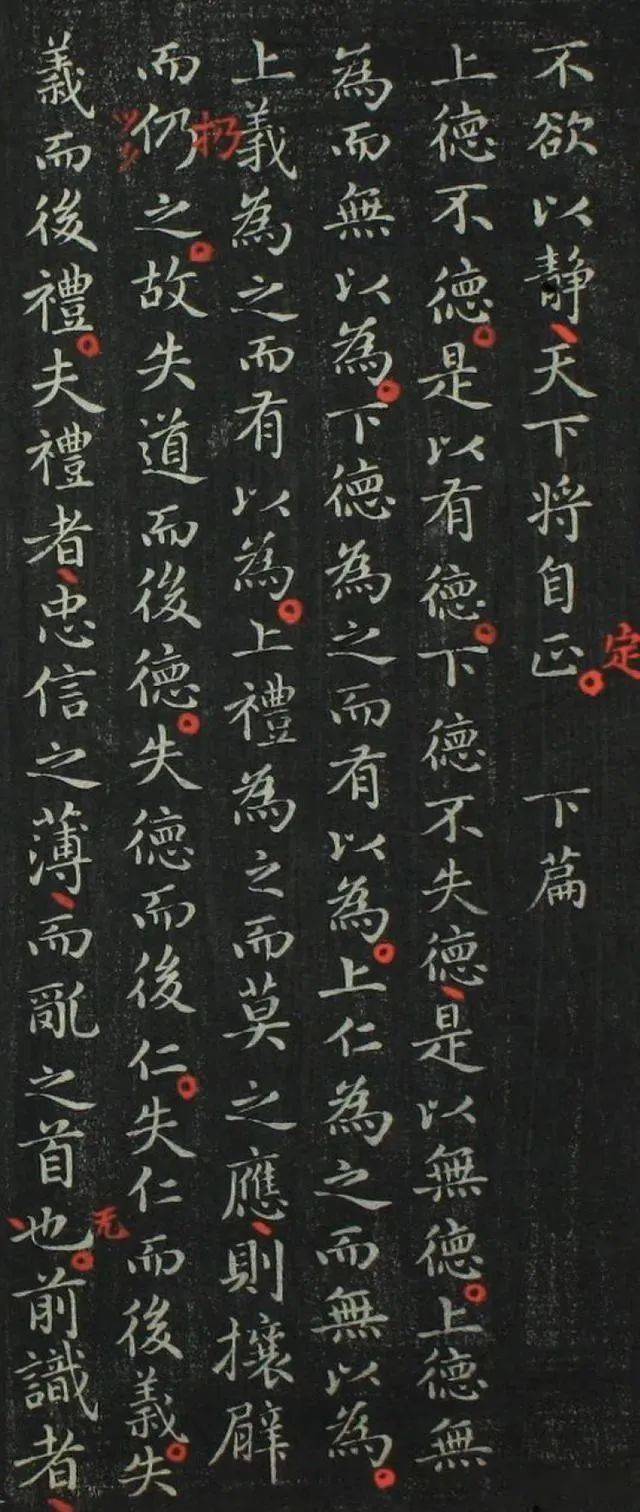 不欲以靜、天下將自正。定 下篇
上德不德。是以有德。下德不失德、是以無德。上德無
為而無以為。下德為之而有以為。上仁為之而無以為。
上義為之而有以為。上禮為之而莫之應、則攘臂
而仍之。扔故失道而後德。失德而後仁。失仁而後義。失
義而後禮。夫禮者、忠信之薄、而亂之首也。无前識者、